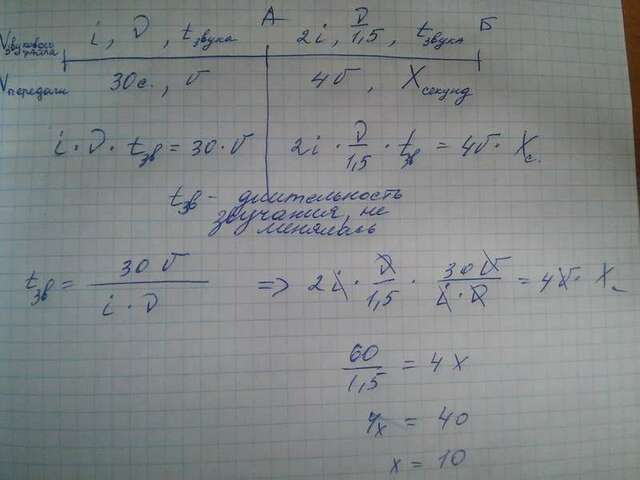 А Б
Vзвукового файла i, D, tзвука 2i, D/1,5, tзвука
Vпередачи 30с., v 4v, Xсекунд
i · D · tзв = 30 · v 2i · D/1,5 · tзв = 4v · Xс.
tзв – длительность
звучания, не
менялась
tзв = 30 v / i · D => 2i · D/1,5 · 30 v / i · D = 4v · Xс
60/1,5 = 4x
4x = 40
x = 10